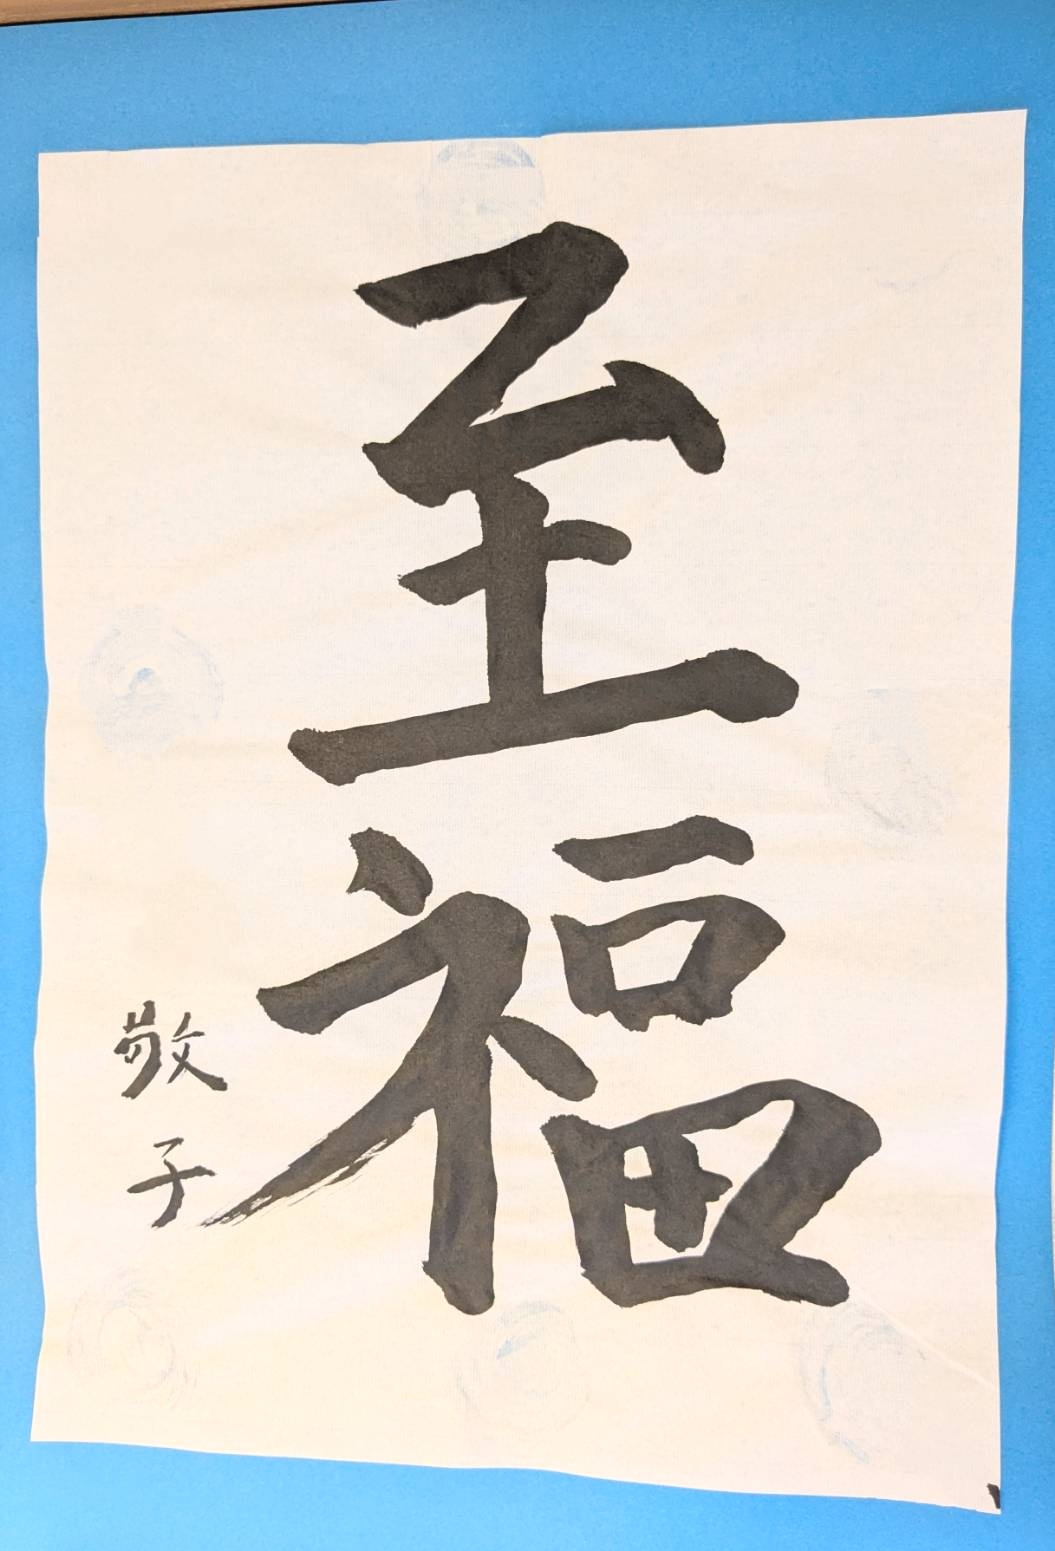 至福
敬子